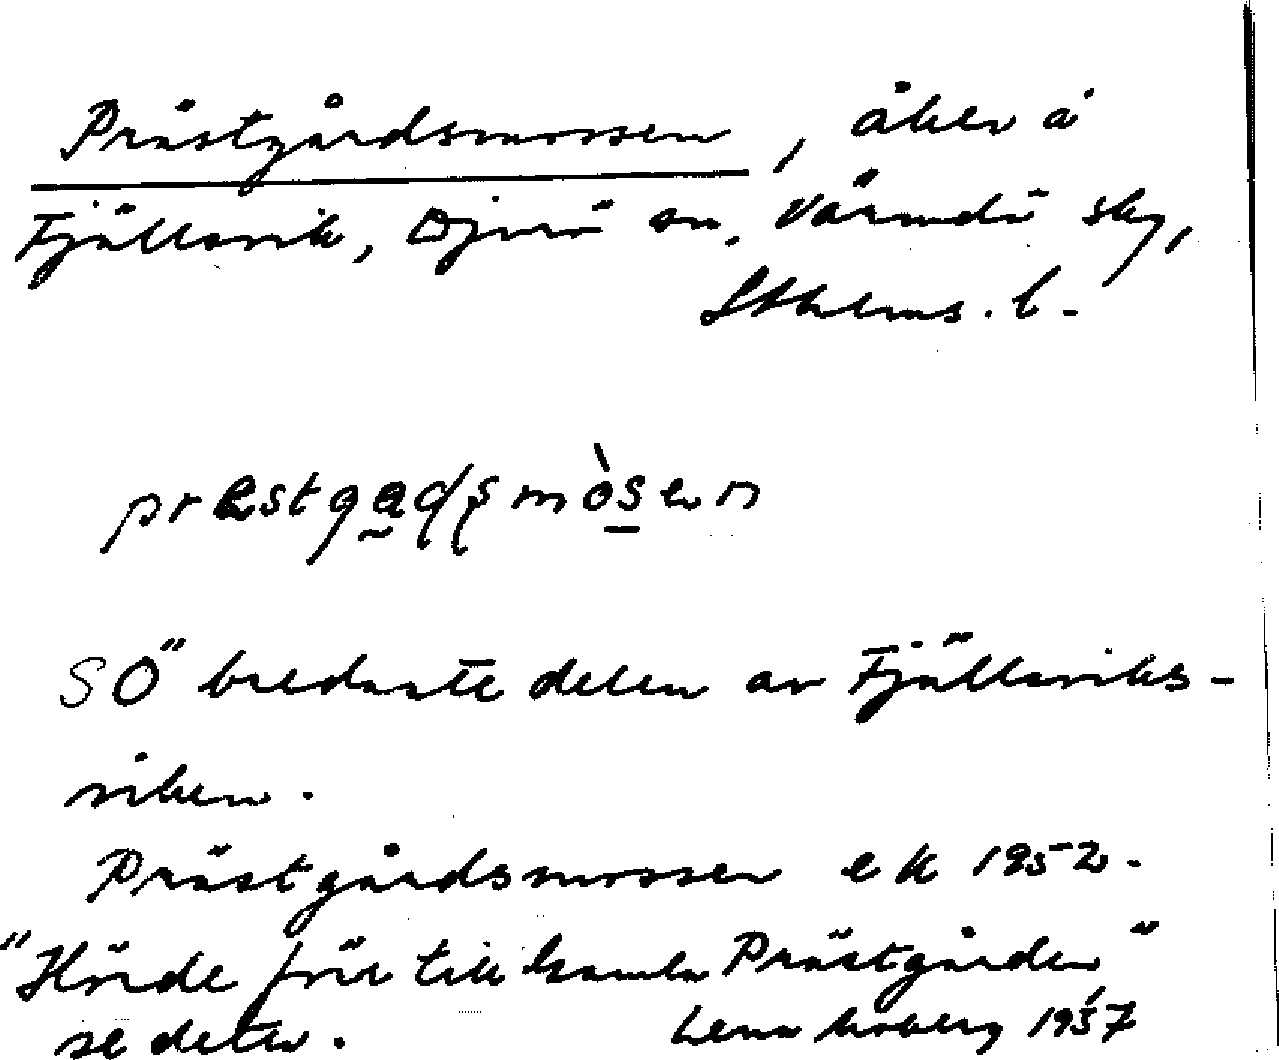 Prästgårdsmossen, åker å
Fjällsvik, Djurö sn, Värmdö sky,
Sthlms. l.
præstgaḍṣmòsen
SÖ bredaste delen av Fjällsviks-
viken.
Prästgårdsmossen ek 1952.
"Hörde förr till Gamla Prästgården"
se detta.
Lena Moberg 1957